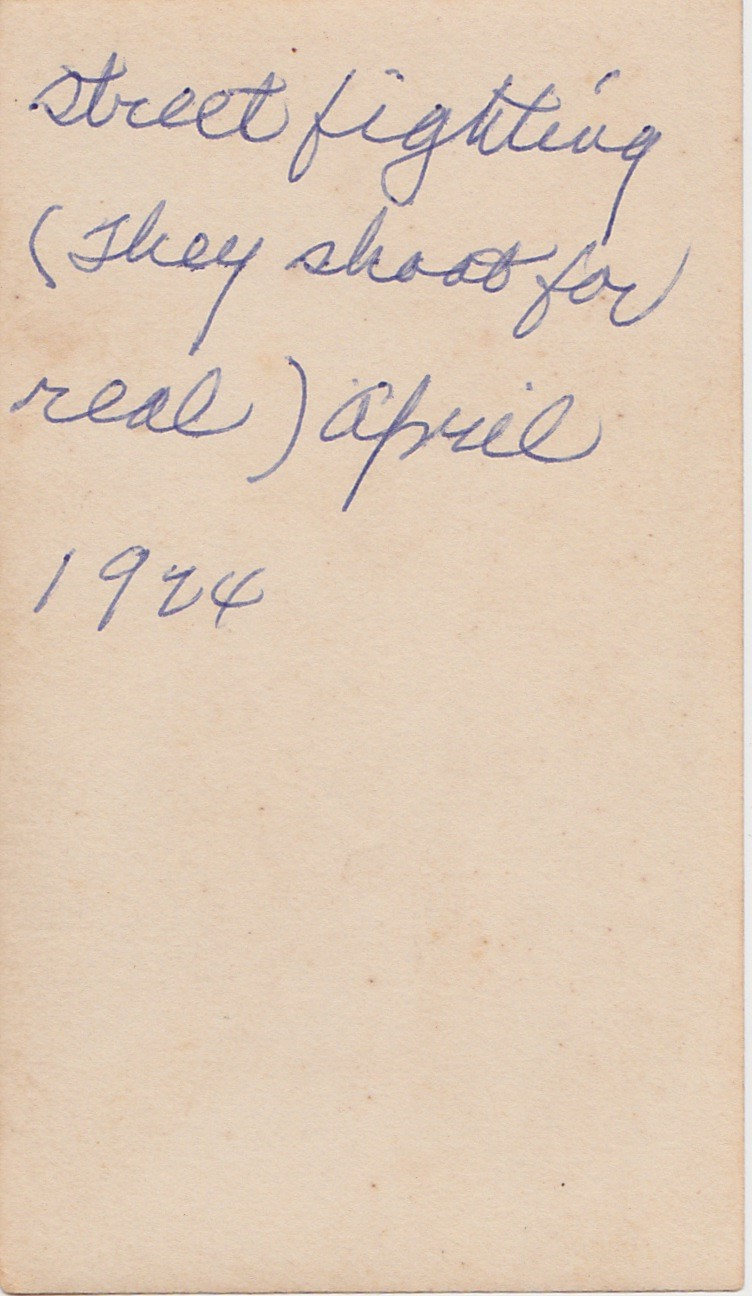 street fighting
(They shoot for
real) April
1924